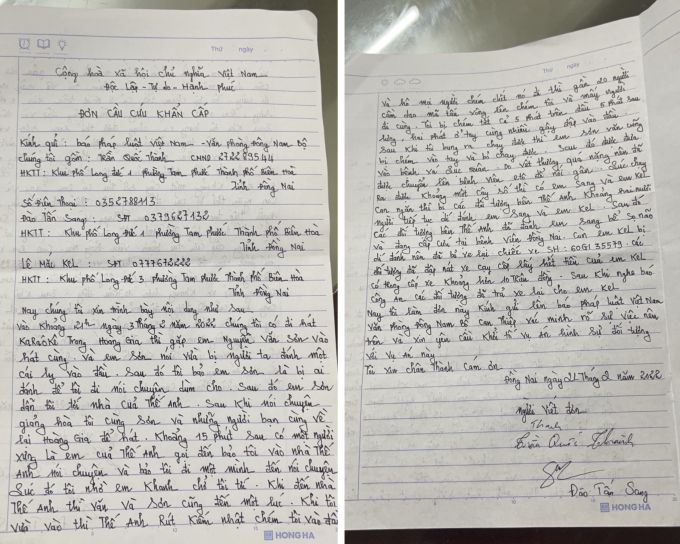 Thứ ngày
Cộng hoà xã hội chủ nghĩa Việt Nam
Độc Lập - Tự do - Hành Phúc
ĐƠN CẦU CỨU KHẨN CẤP
Kính gửi: báo pháp luật Việt Nam - Văn phòng Đông Nam Bộ
chúng tôi gồm: Trần Quốc Thành CMND 272289544
HKTT: Khu phố Long Đức 1 phường Tam phước Thành phố Biên Hoà
Tỉnh Đồng Nai
Số Điện Thoại: 0352788113
Đào Tấn Sang: SĐT 0379627132
HKTT: Khu phố Long Đức 1 Phường Tam Phước Thành phố Biên Hoà
Tỉnh Đồng Nai
Lê Mấu Kel: SĐT 0777672222
HKTT: Khu phố Long Đức 3 Phường Tam phước Thành phố Biên Hoà
Tỉnh Đồng Nai
Nay chúng tôi xin trình bày nội dung như sau
Vào Khoảng 21h ngày 3 tháng 2 năm 2022 chúng tôi có đi hát
Karaoke Trong Hoàng Gia thì gặp em Nguyễn Văn Sơn vào
hát cùng. Và em Sơn nói vừa bị người ta đánh một
cái ly vào đầu. Sau đó tôi bảo em Sơn là bị ai
đánh để tôi đi nói chuyện dùm cho. Sau đó em Sơn
dẫn tôi tới nhà của Thế Anh. Sau khi nói chuyện
giảng hoà tôi cùng Sơn và những người bạn cùng về
lại Hoàng Gia để hát. Khoảng 15 phút sau có một người
xưng là em của Thế Anh gọi đến bảo tôi vào nhà Thế
Anh nói chuyện và bảo tôi đi một mình đến nói chuyện
Lúc đó tôi nhờ em Khanh chở tôi tới. Khi đến nhà
Thế Anh thì Vân và Sơn cũng đến một lúc. Khi tôi
vừa vào thì Thế Anh Rút Kiếm nhật chém tôi vào đầu
HONG HA
Thứ ngày
Và hô mọi người chém chết nó đi thì gần 20 người
cầm dao mã tấu xông lên chém tôi và mấy người
đi cùng. Tôi bị chém tất cả 5 phát trên đầu 5 phát sau
lưng, hai phát ở tay cùng nhiều gậy đập vào đầu
Sau khi tôi bung ra chạy được thì em Sơn vẫn cũng
bị chém vào tay và bỏ chạy được. Sau đó được đưa
vào bệnh va Quân vết thương quá nặng nên đã
được chuyển lên bệnh viện để nối gân. Lúc chạy
ra được Khoảng một cây số thì có em Sang và em Kel
Can ngăn thì bị các đối tượng bên Thế Anh Khoảng hai mươi
người tiếp tục đi đánh em Sang và em Kel. Sau đó
Các đối tượng bên Thế Anh đã đánh em Sang bể Sọ não
và đang cấp cứu tại bệnh Viện Đồng Nai. Còn em Kel bị
đá đánh nên đã bỏ xe lại chiếc xe SH: 60G1 35579. các
đối tượng đã đập nát xe cạy cốp lấy hết tiền của em Kel
có trong cốp xe Khoảng hơn 10 Triệu đồng. Sau khi nghe báo
Công An các đối tượng đã trả xe lại cho em Kel.
Nay tôi làm đơn này Kính gửi lên báo pháp luật Việt Nam
Văn phòng Đông Nam Bộ can Thiệp xác minh rõ sự việc nêu
trên và xin yêu cầu Khởi tố Vụ Án hình Sự đối tượng
với Vụ Án này.
Tôi xin chân Thành Cảm ơn
Đồng Nai ngày 21 Tháng 2 năm 2022
người viết đơn
Thành
Trần Quốc Thành
Đào Tấn Sang
HONG HA